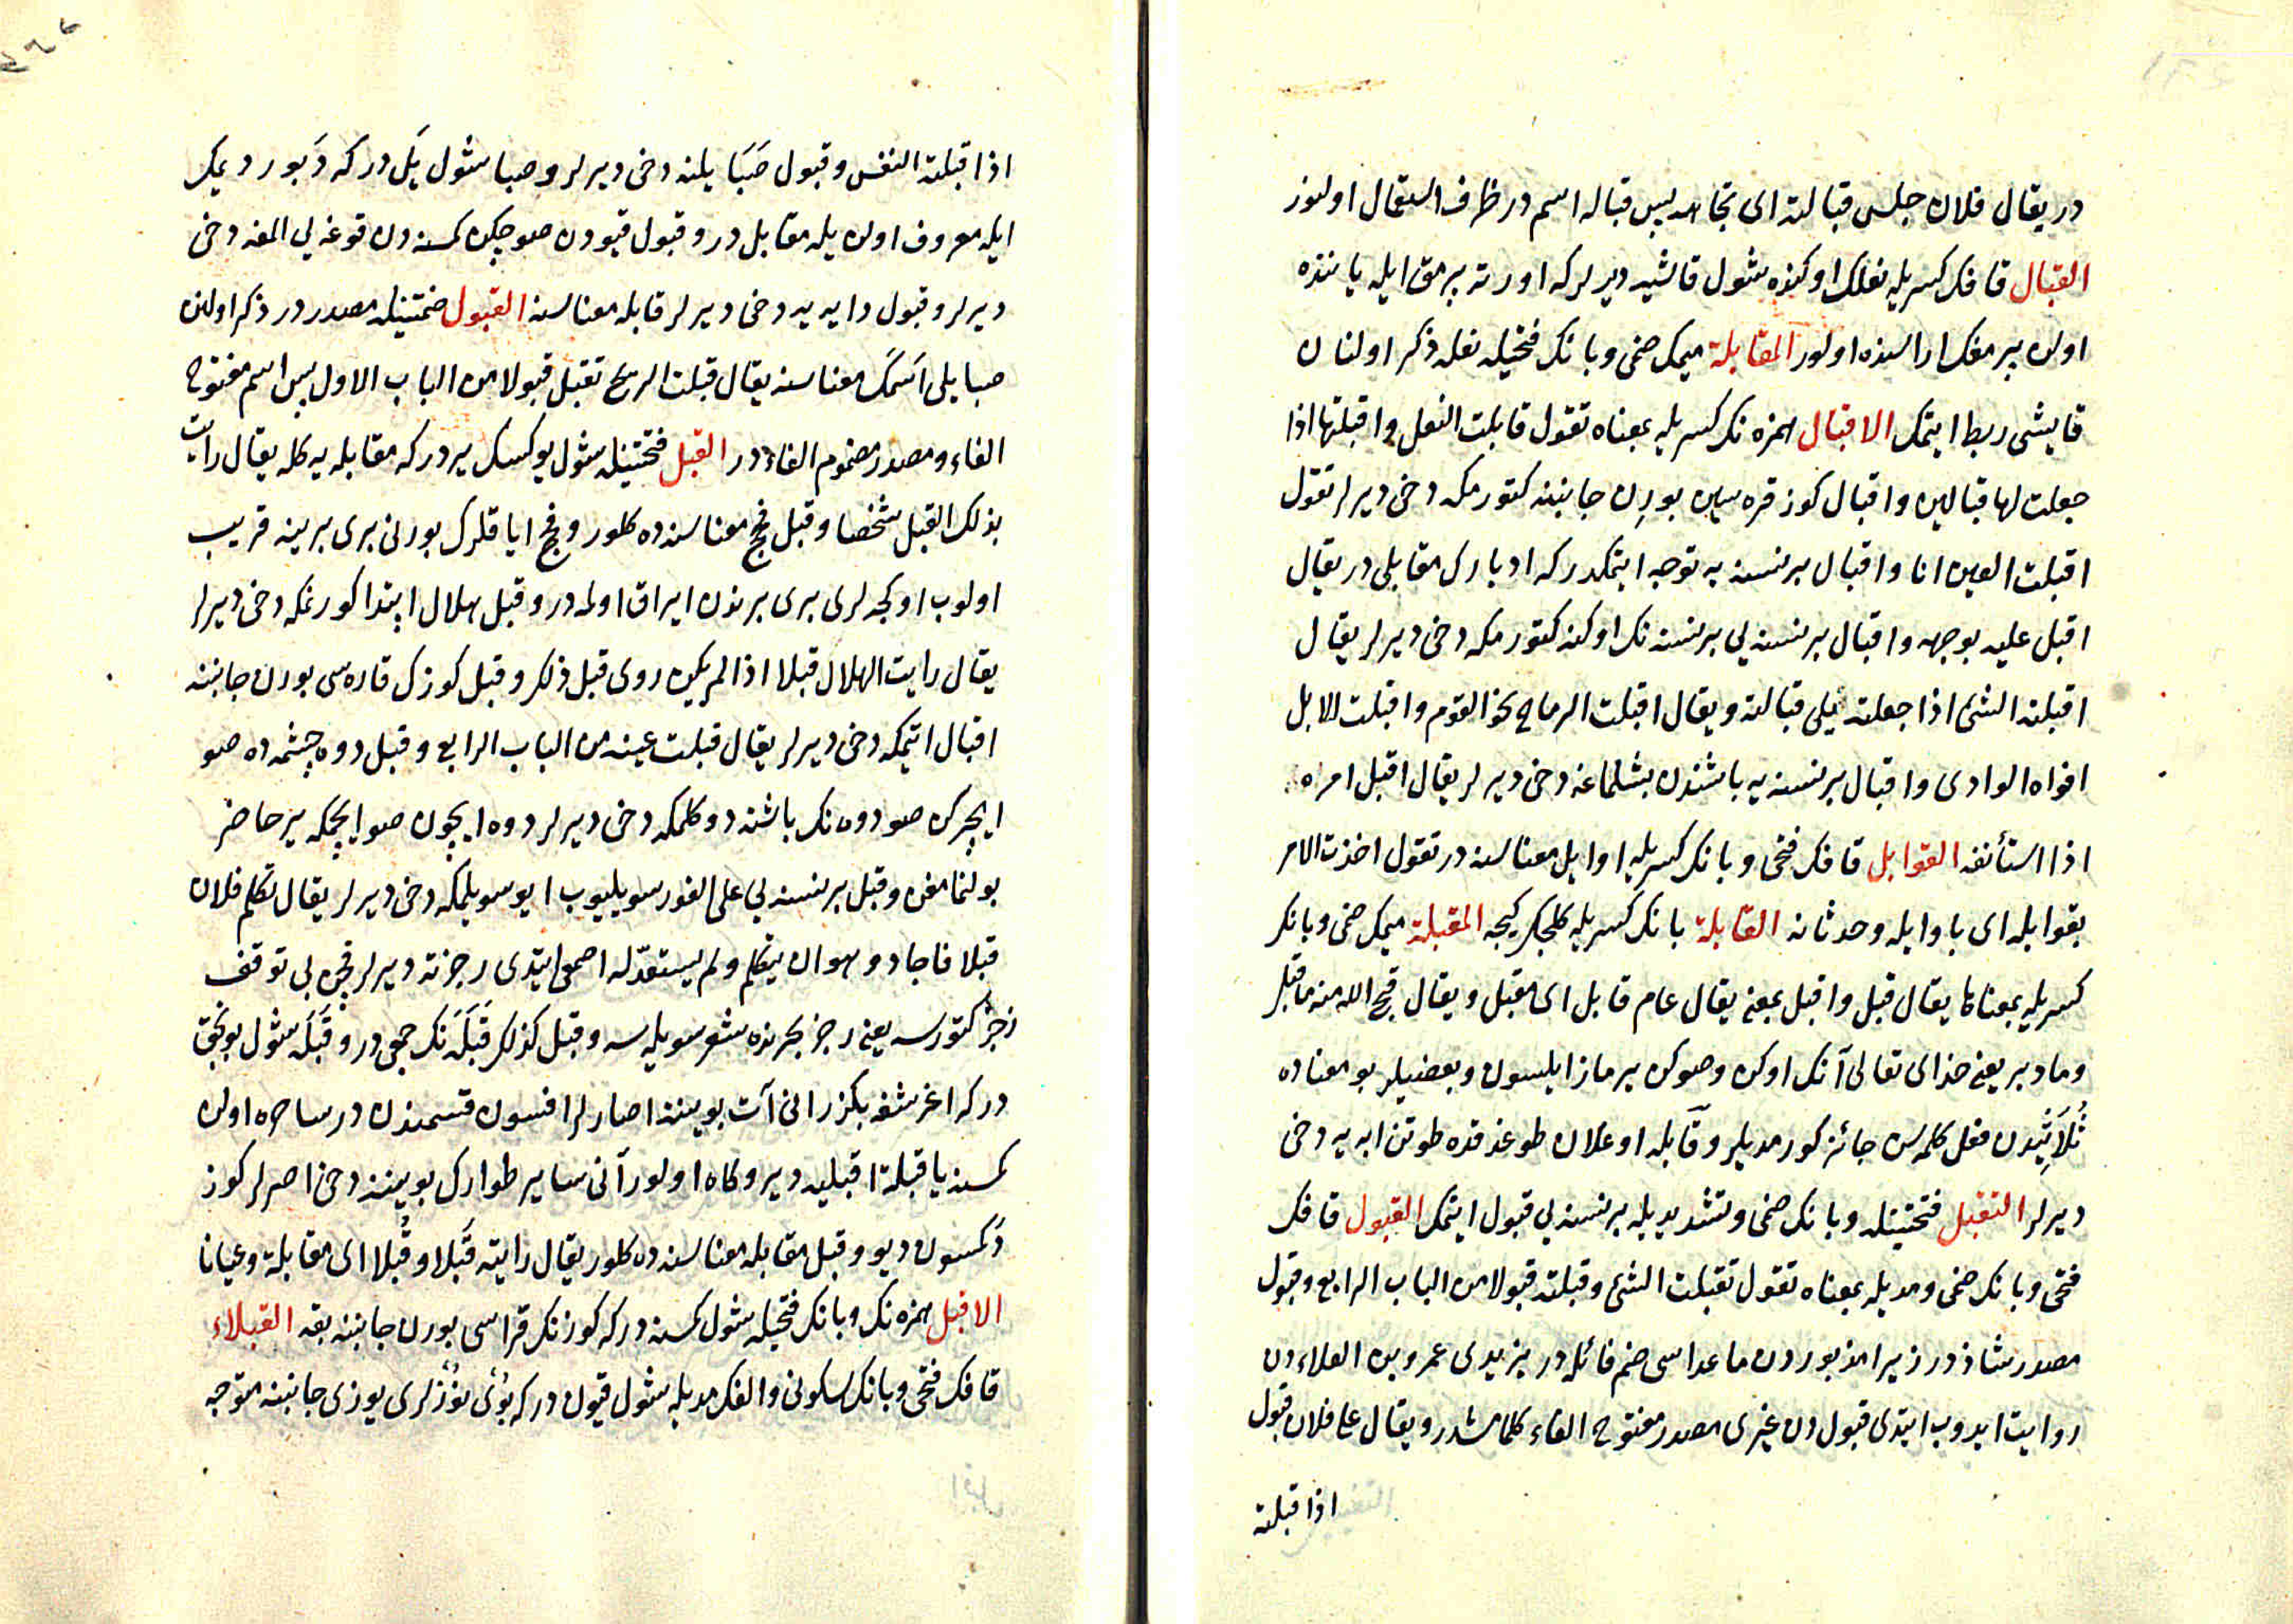 در يقال فلان جلس قبالته اى تجاهه پس قباله اسم در ظرف استعمال اولنوز
القبال قافك كسريله نعلك اوكنده شول قايشه ديرلر كه اورته برمق ايله ياننده
اولن برمغك اراسنده اولور المقابلة ميمك ضمى وبانك فتحيله نعله ذكر اولنان
قايشى ربط ايتمك الاقبال همزه نك كسريله بمعناه تقول قابلت النعل واقبلتها اذا
جعلت لها قبالين واقبال كوز قره سين بورن جانبنه كتورمكه دخى ديرلر تقول
اقبلت العين انا واقبال بر نسنه يه توجه ايتمكدر كه ادبارك مقابلى در يقال
اقبل عليه بوجهه واقبال بر نسنه يى بر نسنه نك اوكنه كتورمكه دخى ديرلر يقال
اقبلته الشئ اذا جعلته يلى قبالته ويقال اقبلت الرماح نحو القوم واقبلت الابل
افواه الوادى واقبال بر نسنه يه باشندن بشلماغه دخى ديرلر يقال اقبل امره
اذا استأنفه القوابل قافك فتحى وبانك كسريله اوايل معناسنه در تقول اخذت الامر
بقوابله اى باوايله وحدثانه القابلة بانك كسريله كلجك كيجه المقبلة ميمك ضمى وبانك
كسريله بمعناها يقال قبل واقبل بمعنى يقال عام قابل اى مقبل ويقال قبح الله منه ما قبل
وما دبر يعنى خداى تعالى آنك اوكن وصوكن يرماز ايلسون وبعضيلر بو معناده
ثلاثيدن فعل كلمه سن جائز كورمديلر وقابله اوغلان طوغدقده طوتن ابه يه دخى
ديرلر التقبل فتحتينله وبانك ضمى وتشديديله بر نسنه يى قبول ايتمك القبول قافك
فتحى وبانك ضمى ومديله بمعناه تقول تقبلت الشئ وقبلته قبولا من الباب الرابع وقبول
مصدر شاذ در زيرا مذبوردن ماعداسى ضم فائله در يزيدى عمرو بن العلاءدن
روايت ايدوب ايتدى قبول دن غيرى مصدر مفتوح الفاء كلمامشدر ويقال على فلان قبول
اذا قبلته
اذا قبلته النفس وقبول صبا يلنه دخى ديرلر وصبا شول يل در كه دبور ديمك
ايله معروف اولن يله مقابل در وقبول قيودن صو چكن كمسنه دن قوغه يى المغه دخى
ديرلر وقبول دايه يه دخى ديرلر قابله معناسنه القبول ضمتينله مصدر در ذكر اولنن
صبا يلى اسمك معناسنه يقال قبلت الريح تقبل قبولا من الباب الاول پس اسم مفتوح
الفاء ومصدر مضموم الفاءدر القبل فتحتينله شول يوكسك يردر كه مقابله يه كله يقال رايت
بذلك القبل شخصا وقبل فحج معناسنده كلور وفحج اياقلرك بورنى برى برينه قريب
اولوب اوكجه لرى برى برندن ايراق اولمه در وقبل هلال ابتدا كورنمكه دخى ديرلر
يقال رايت الهلال قبلا اذا لم يكن روى قبل ذلك وقبل كوزك قاره سى بورن جانبنه
اقبال ايتمكه دخى ديرلر يقال قبلت عينه من الباب الرابع وقبل دوه چشمه ده صو
ايچركن صو دوه نك باشنه دوكلمكه دخى ديرلر دوه ايچون صو ايچمكه ير حاضر
بولنمامغن وقبل بر نسنه يى على الفور سويليوب ايو سويلمكه دخى ديرلر يقال تكلم فلان
قبلا فاجاد وهو ان يتكلم ولم يستعد له اصمعى ايتدى رجزته ديرلر قچن بى توقف
رجز كتورسه يعنى رجز بحرنده شعر سويليسه وقبل كذلك قبله نك جمعى در وقبله شول بونجق
در كه اغرشغه بكزر انى آت بويننه اصارلر افسون قسمندن در ساحره اولن
كمسنه يا قبلة اقبليه دير وكاه اولور آنى ساير طوارك بويننه دخى اصرلر كوز
دكمسون ديو وقبل مقابله معناسنده كلور يقال رايته قبلا وقبلا اى مقابلة وعيانا
الاقبل همزه نك وبانك فتحيله شول كمسنه در كه كوزنك قراسى بورن جانبنه بقه القبلاء
قافك فتحى وبانك سكونى والفك مديله شول قيون در كه بوينوزلرى يوزى جانبنه متوجه